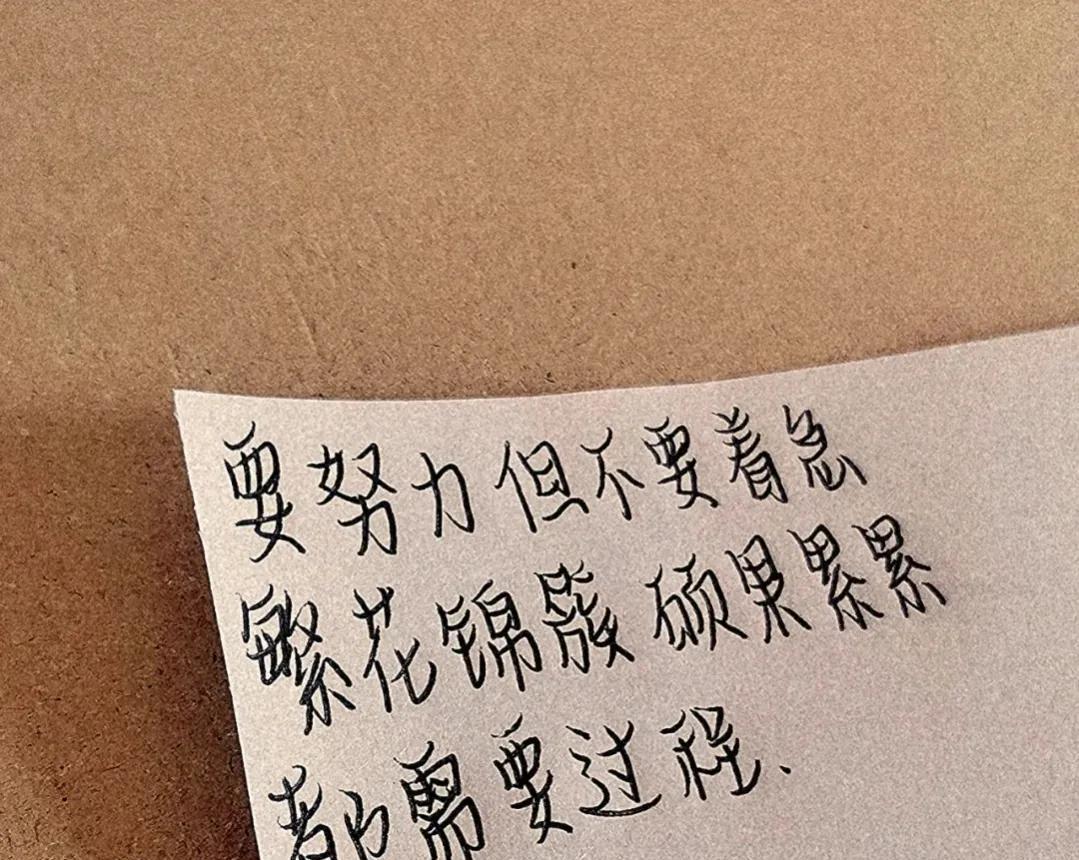 要努力但不要着急
繁花锦簇 硕果累累
都需要过程.